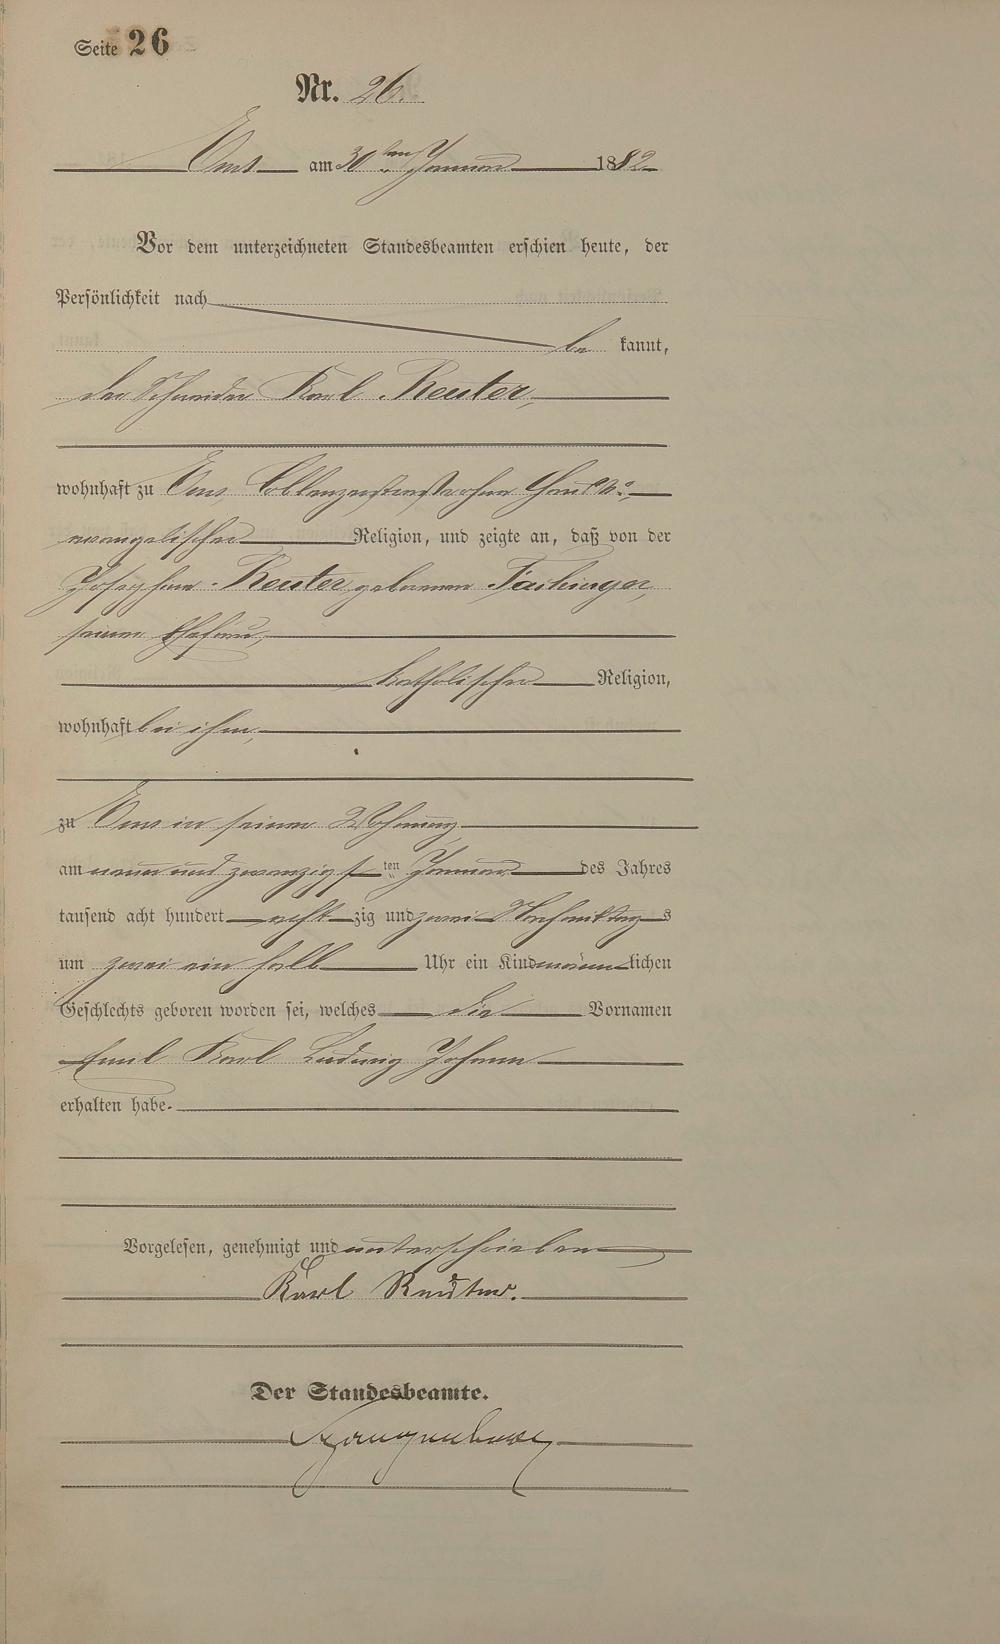 Seite 26
Nr. 26.
Ems am 30ten Januar 1882
Vor dem unterzeichneten Standesbeamten erschien heute, der
Persönlichkeit nach
be kannt,
der Schneider Karl Reuter,
wohnhaft zu Ems, Coblenzerstraße ohne Haus No.,
evangelischer Religion, und zeigte an, daß von der
Josephine Reuter geborenen
seiner Ehefrau,
katholischer Religion,
wohnhaft bei ihm,
zu Ems in seiner Wohnung,
am neun und zwanzigsten Januar des Jahres
tausend acht hundert acht zig und zwei Nachmittags
um zwei ein halb Uhr ein Kind männlichen
Geschlechts geboren worden sei, welches die Vornamen
Emil Karl Ludwig Johann
erhalten habe.
Vorgelesen, genehmigt und unterschrieben
Karl Reuter.
Der Standesbeamte.